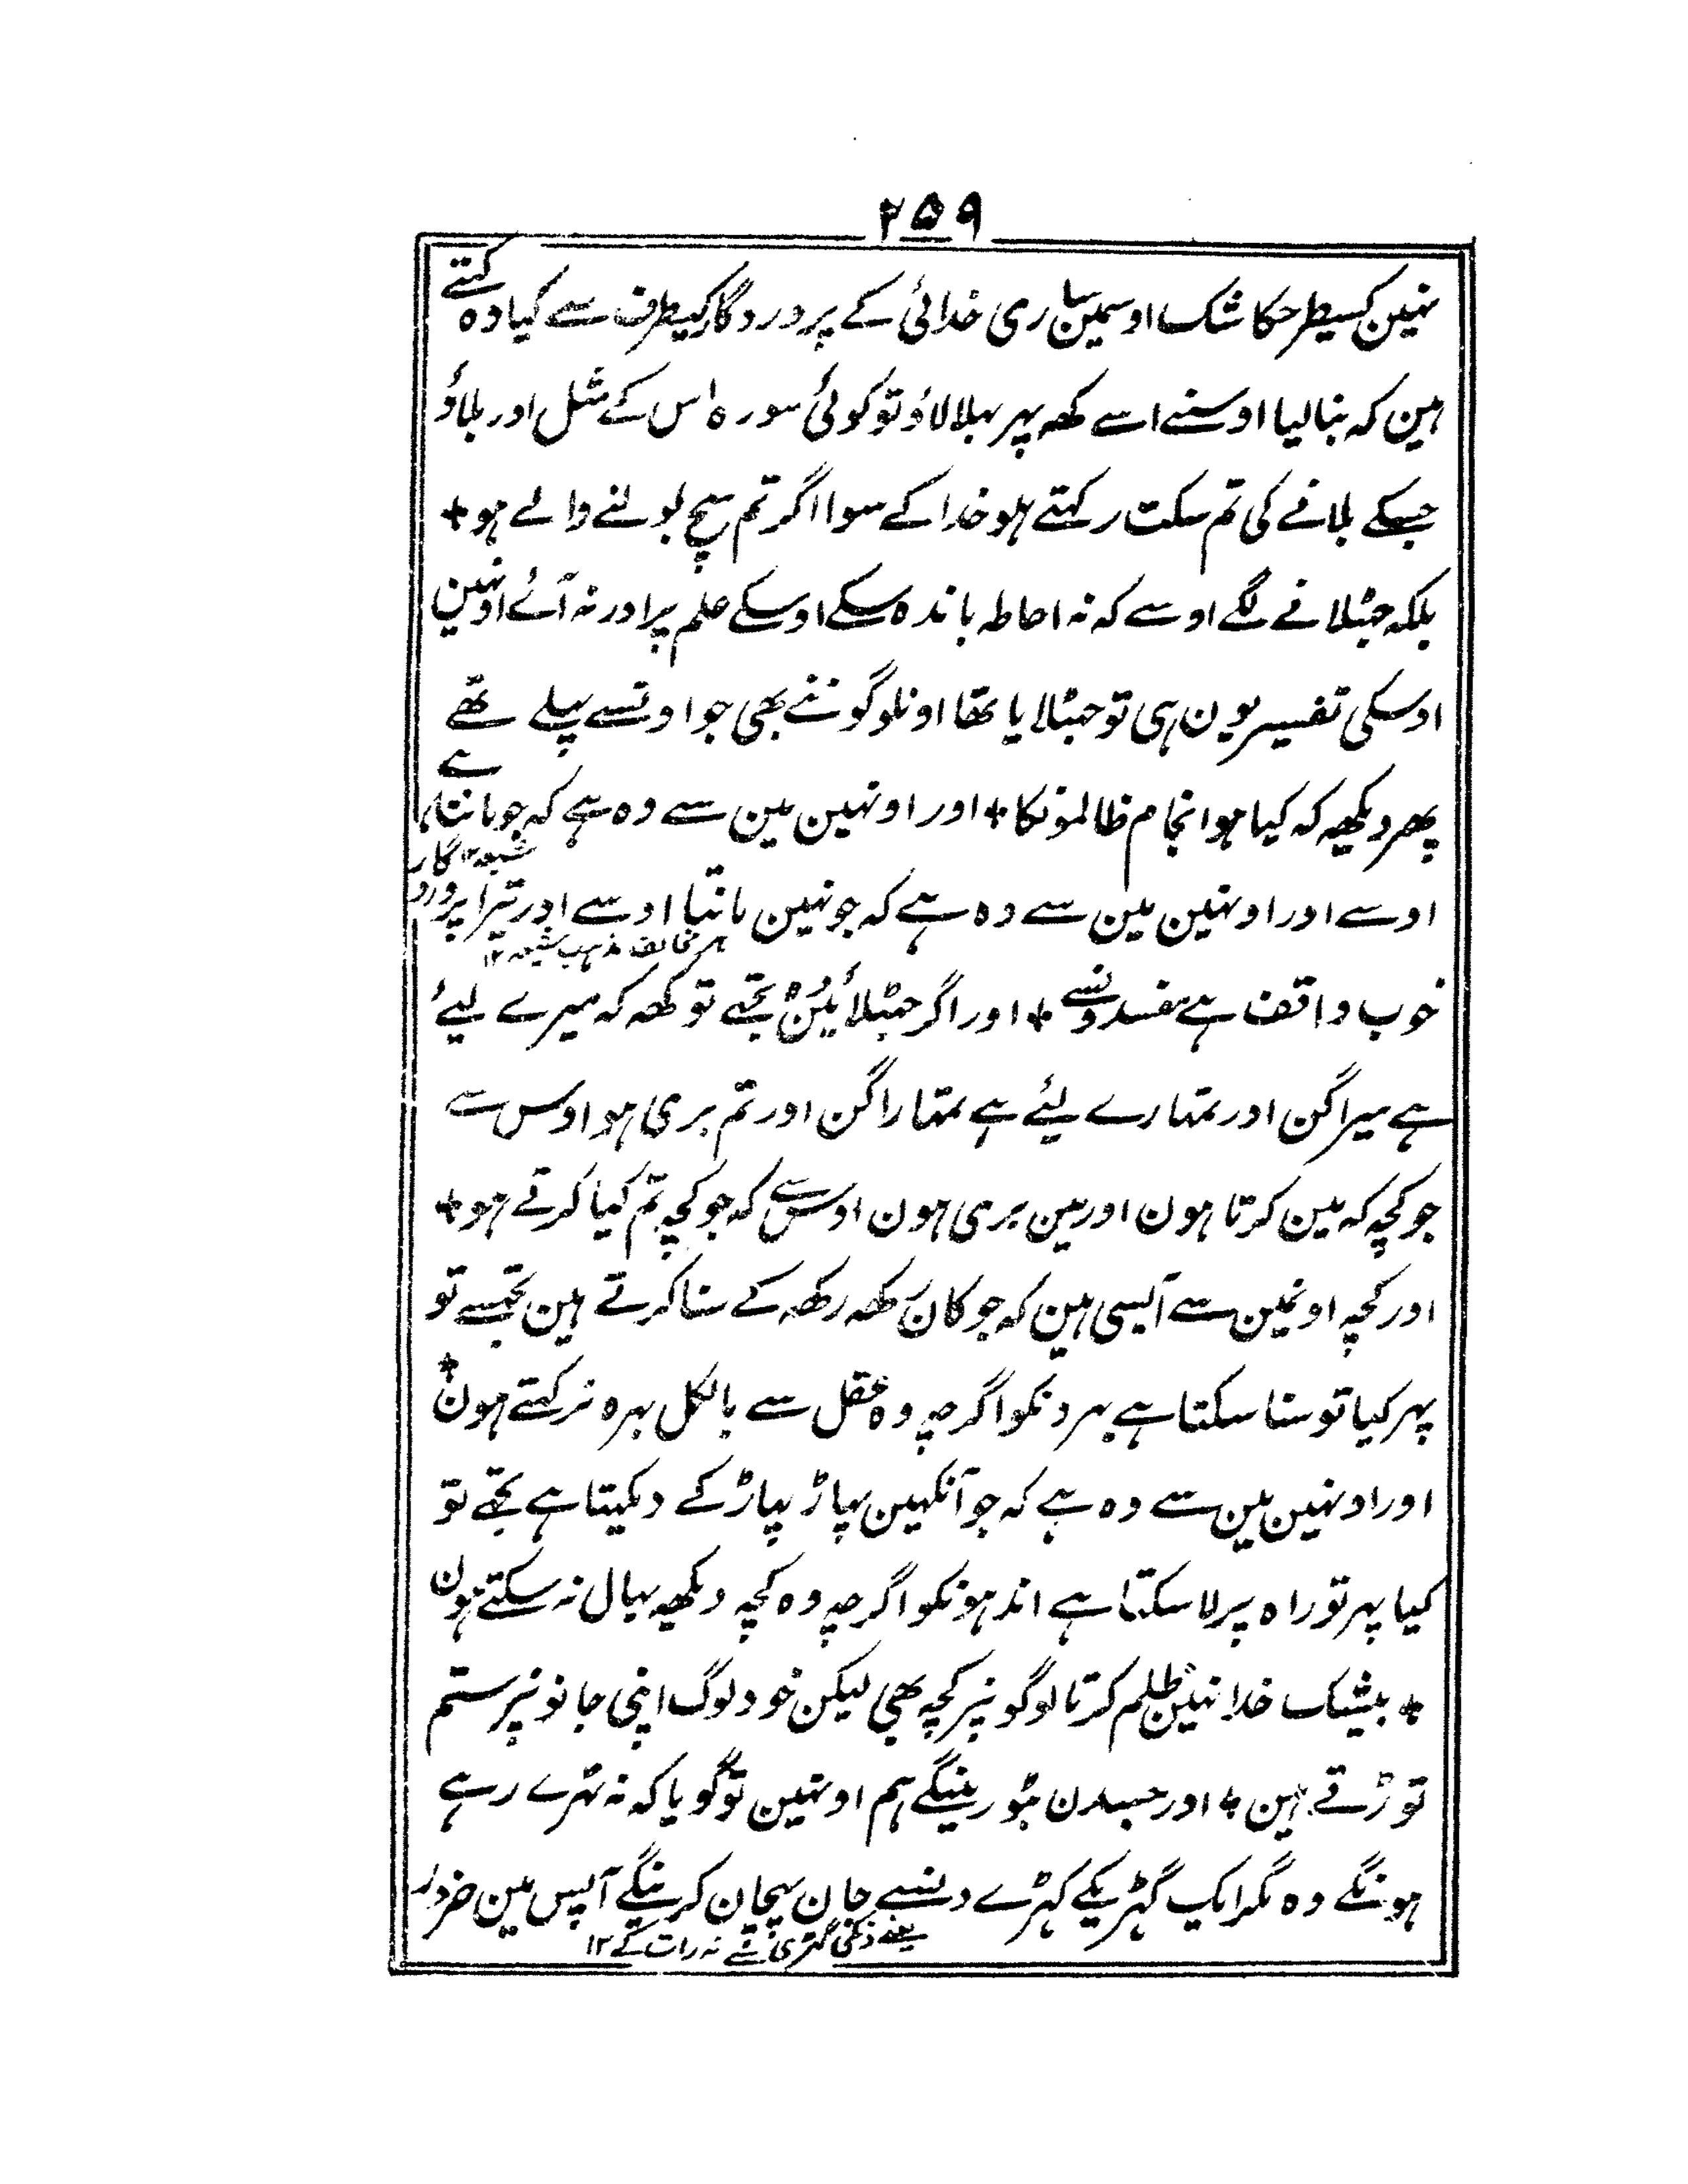 ۲۵۹
نہین کسیطرحکا شک اوسمین ساری خدائی کے پروردگار کیطرف سے کیا وہ کہتے
ہین کہ بنا لیا اوسنے اسے کھہ پہر بہلا لاؤ تو کوئی سورہ اس کے مثل اور بلاؤ
جسکے بلانے کی تم سکت رکہتے ہو خدا کے سوا اگر تم سچ بولنے والے ہو +
بلکہ جہٹلانے لگے اوسے کہ نہ احاطہ باندہ سکے اوسکے علم پر اور نہ آئے اونہین
اوسکی تفسیر یون ہی تو جہٹلایا تھا اونلوگوننے بھی جو اونسے پہلے تھے
پھر دیکھہ کہ کیا ہوا انجام ظالمونکا + اور اونہین مین سے وہ ہے کہ جو مانتا ہے
اوسے اور اونہین مین سے وہ ہے کہ جو نہین مانتا اوسے اور تیرا پروردگار
ہر مخالف مذہب شیعہ ۱۲
خوب واقف ہے مفسدونسے + اور اگر جہٹلائین تجھے تو کھہ کہ میرے لیئے
ہے میرا گن اور تمہارے لیئے ہے تمہارا گن اور تم بری ہو اوس سے
جو کچہ کہ مین کرتا ہون اور مین بری ہون اوس سے کہ جو کچہ تم کیا کرتے ہو +
اور کچہ اونمین سے آیسی ہین کہ جو کان رکھہ رکھہ کے سنا کرتے ہین تجہسے تو
پہر کیا تو سنا سکتا ہے بہرونکو اگرچہ وہ عقل سے بالکل بہرہ نرکہتے ہون +
اور اونہین مین سے وہ ہے کہ جو آنکہین پہاڑ پہاڑ کے دیکہتا ہے تجھے تو
کیا پہر تو راہ پر لا سکتا ہے اندہونکو اگرچہ وہ کچہ دیکھہ بہال نہ سکتے ہون
+ بیشک خدا نہین ظلم کرتا لوگونپر کچہ بھی لیکن خود لوگ اپنی جانونپر ستم
توڑتے ہین + اور جسدن بٹورینگے ہم اونہین تو گویا کہ نہ ٹہرے رہے
ہونگے وہ مگر ایک گہڑیکے کہڑے دنسے جان پہچان کرینگے آپس مین ضرور
یعنے دنکی گہڑی تہے نہ رات کے ۱۲